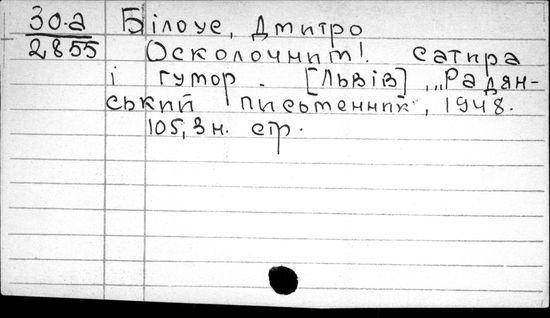 30.а Білоус, Дмитро
2855 Осколочним! сатира
і гумор. [Львів], „Радян-
ський письменник", 1948.
105, 3 н. стр.